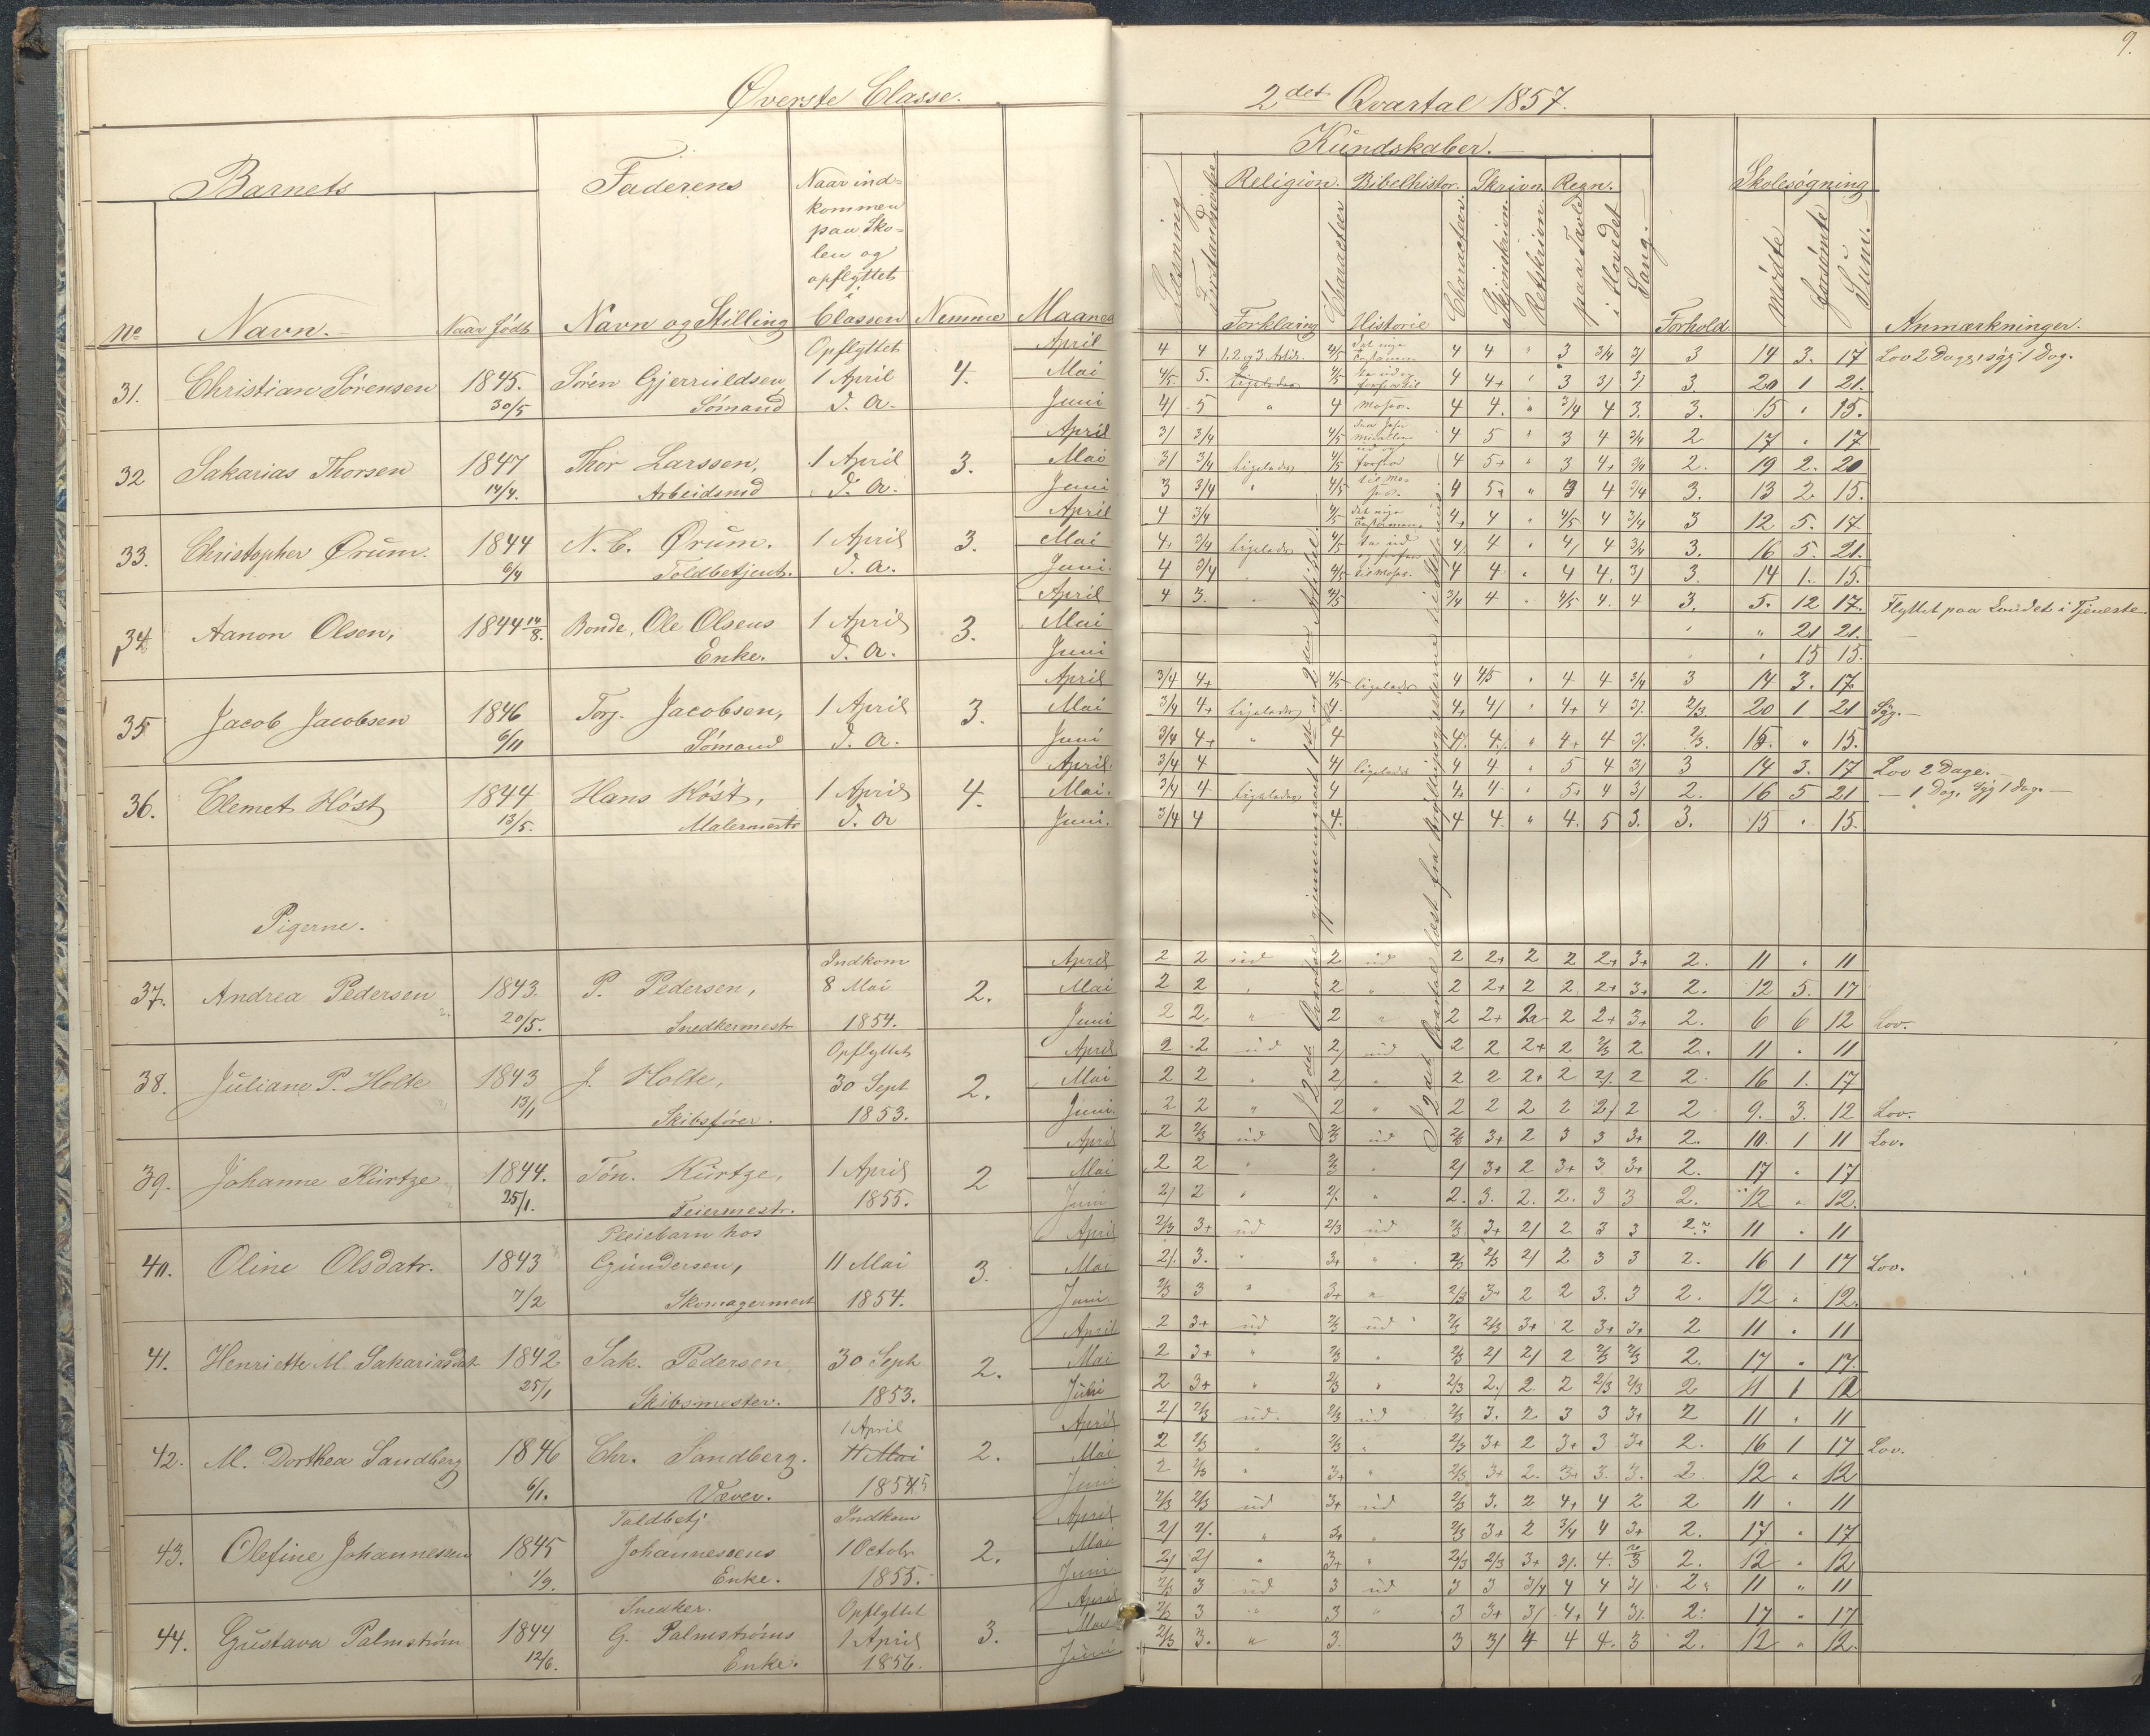 9.
Øverste Classe.
2det Qvartal 1857.
Barnets
Faderens
Naar ind=
kommen
paa Sko=
len og
opflyttet
Kundskaber.
Religion. Bibelhistor. Skrivn. Regn.
Skolesøgning
No Navn. Naar født Navn og Stilling Classen Nemme Maaned
Læsning
Forklaring Character Historie Character Skjønskrivn. Retskrivn. paa Tavle i Hovedet Sang. Forhold mødte forsømte Sum. Anmærkninger.
Opflyttet April 4 4 1, 2 og 3. Artik. 4/5 4 4 3 3/4 3/ 3 14 3. 17 Lov 2 Dage, syg 1 Dag.
31. Christian Sørensen 1845. Søren Gjerruldsen 1 April 4. Mai 4/5. 5. ligeledes 4/5 4 4+ 3 3/ 3/. 3. 20 1 21.
30/5 Sømand d. A. Juni 4/ 5 " 4 Moses. 4 4. " 3/4 4 3. 3. 15 " 15.
April 3/ 3/4 4/5 4 5 " 3 4 3/4 2 17 " 17
32 Sakarias Thorsen 1847 Thor Larssen, 1 April 3. Mai 3/ 3/4 ligeledes 4/5 4 5+ " 3 4+ 3/4 2. 19 2. 20
14/4. Arbeidsmd d. A. Juni 3 3/4 " 4/5 4 5+ " 3 4 3/4 3. 13 2 15.
April 4 3/4 4/5 4+ 4 " 4/5 4 3/4 3 12 5. 17.
33. Christopher Ørum. 1844 N. C. Ørum. 1 April 3. Mai 4+ 3/4 ligeledes 4/5 4/ 4 " 4/ 4 3/4 3. 16 5. 21.
6/4 Toldbetjent. d. A. Juni. 4 3/4 4/5 til Moses. 4 4 " 4 4. 3/ 3. 14 1. 15.
April 4 3. 4/5 3/4 4 " 4/5 4. 4 3. 5. 12 17. Flyttet paa Landet i Tjeneste.
34 Aanon Olsen, 1844 14/8. Bonde, Ole Olsens 1 April 3. Mai " 21 21.
Enke. d. A. Juni " 15 15.
April 3/4 4+ 4/5 ligeledes 4 4/5 " 4 4 3/4 3 14 3. 17.
35 Jacob Jacobsen 1846 Torj. Jacobsen, 1 April 3. Mai 3/4 4+ ligeledes 4. 4+ 4/ " 4+ 4 3/. 2/3. 20 1 21 Syg.
6/11 Sømand d. A. Juni 3/4 4+ " 4 4/. 4/. " 4+ 4 3/. 2/3. 15. " 15.
April. 3/4 4 4/ ligeledes 4 4 " 5 4 3/ 3 14 3. 17 Lov 2 Dage.
36. Clemet Høst 1844 Hans Høst, 1 April 4. Mai. 3/4 4 ligeledes 4 4+ 4 " 5+ 4 3/ 2. 16 5 21 — 1 Dag, syg 1 Dag.
13/5. Malermestr d. A Juni. 3/4 4 4. 4 4. " 4. 5 3. 3. 15 " 15.
I 2det Qvartal gjennemgaaet 1st og 2den Artikel.
Pigerne.
Indkom April 2 2 ud 2 ud 2 2+ 2 2 2+ 3+ 2. 11 " 11
37. Andrea Pedersen 1843. P. Pedersen, 8 Mai 2. Mai 2 2 " 2 " 2 2+ 2 2. 2+ 3+ 2. 12 5. 17
20/5. Snedkermestr 1854. Juni 2 2. " 2 " 2 2+ 2 2 2+ 3+ 2. 6 6 12 Lov.
Opflyttet April 2 2 ud 2/ ud 2 2 2+ 2 2/3 2 2. 11 " 11
38. Juliane P. Holte 1843 J. Holte, 30 Sept 2. Mai 2 2 " 2/ " 2 2 2+ 2 2/. 2 2. 16 1. 17
13/1 Skibsfører. 1853. Juni. 2 2 " 2 " 2 2 2 2 2/ 2 2 9. 3. 12 Lov.
April 2 2/3 ud 2/3 ud 2/3 3+ 2 3 3 3+ 2. 10. 1 11 Lov.
39. Johanne Kürtze 1844. Tøn. Kürtze, 1 April 2 Mai 2 2 " 2/3 " 2/ 3+ 2 3+ 3. 3+ 2. 17 " 17
25/1. Feiermestr. 1855. Juni 2/ 2 " 2/. " 2. 3. 2. 2. 3 3 2. 12 " 12.
Pleiebarn hos April 2/3 3+ ud 2/3 ud 2/3 3+ 2/ 2 3 3 2. 11 " 11
40. Oline Olsdatr. 1843 Gundersen, 11 Mai 3. Mai 2/. 3. " 3+ " 2/3 2/3 2/ 2 3 3 2. 16 1 17 Lov.
7/2 Skomagermest 1854. Juni 2/3 3 " 3+ " 2/3 3+ 2 2 3. 3 2. 12 " 12.
April 2 3+ ud 2/3 ud 2/3 2/3 3+ 2 3+ 3+ 2 11 " 11
41. Henriette M. Sakariasdat 1842 Sak. Pedersen 30 Sept 2. Mai 2 3+ " 2/3 " 2/3 2/ 2/ 2 2/3 2/3 2. 17 " 17.
25/1 Skibsmester. 1853. Juni 2 3+ " 2/3 " 2/3 2/ 2. 2 2/3 2/3 2 11 1 12
1 April April 2/ 2/3 ud. 2/3 ud 2/3 3. 2 3 3 3+ 2 11 " 11
42. M. Dorthea Sandberg 1846 Chr. Sandberg. 11 Mai 2. Mai 2 2/3 " 2/3 " 2/3 3+ 2 3+ 3 3+ 2. 16 1 17 Lov.
6/1. Væver. 1855 Juni 2 2/3 " 3+ " 2/3 3+ 2. 3+ 3. 3. 2. 12 " 12
Toldbetj. Indkom April 2/3 2/3 ud 3+ ud 2/3 3. 2 4+ 4 2 2 11 " 11
43. Olefine Johannessen 1845 Johannesens 1 Octobr 2. Mai 2/ 2/. " 3+ " 2/3 3+ 2 3/4 4 3+ 2. 17 " 17
1/9. Enke. 1855. Juni 2/ 2/ " 3+ " 2/3 2/3 3+ 3/. 4. 2/3 2. 12 " 12
Snedker. Opflyttet April 2/3 3 ud 3 ud 3 3 3/4 4 4 3/ 2 11 " 11
44. Gustava Palmstrøm 1844 G. Palmstrøms 1 April 3. Mai 2/3 3 " 3 " 3 3+ 3/ 4+ 4 3/. 2. 17 " 17
12/6. Enke. 1856. Juni 2/3 3. " 3. 3 3/ 4 4 4. 3 2. 12 " 12.